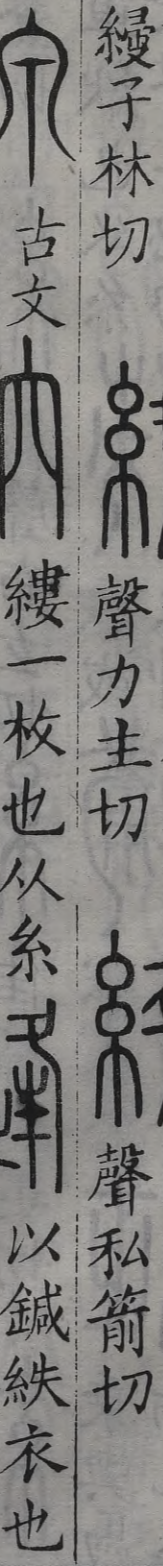 綅子林切　聲力主切　聲私箭切
古文　縷一枚也从糸　以鍼紩衣也